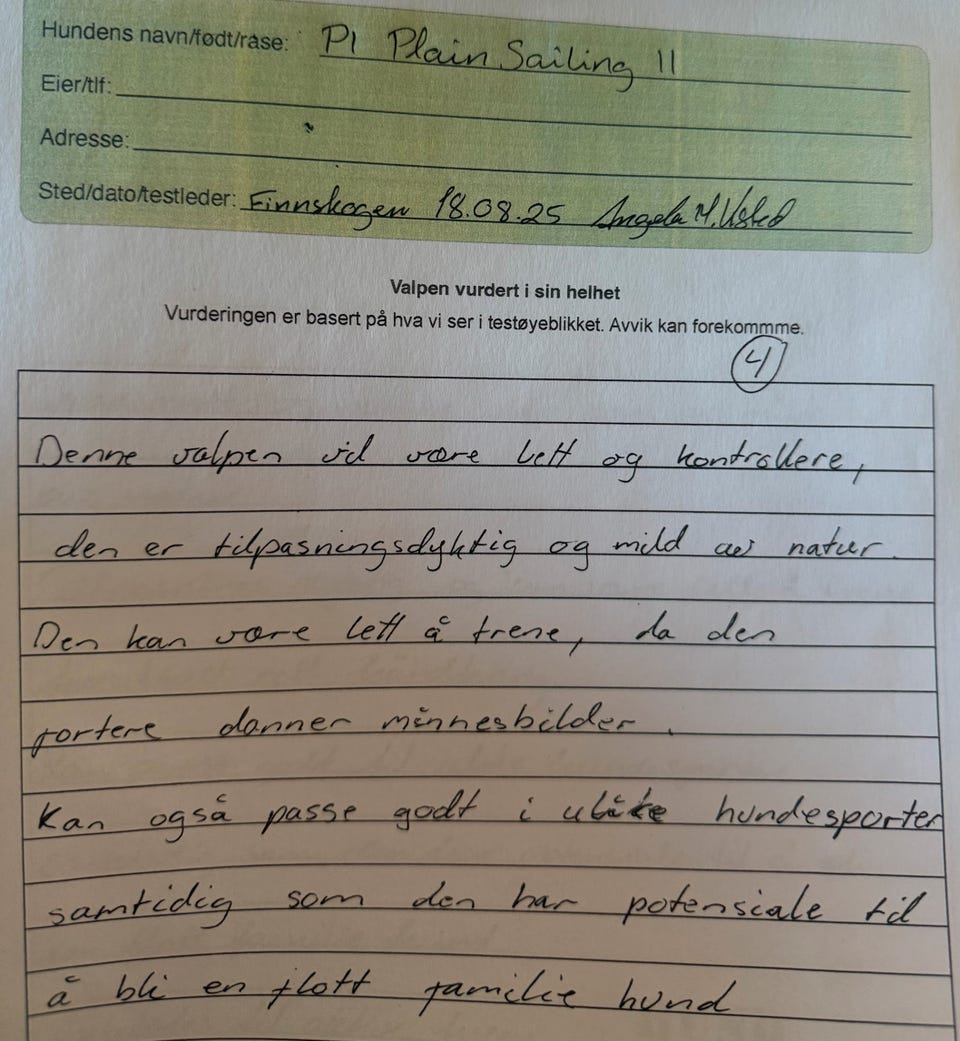 Hundens navn/født/rase: P1 Plain Sailing 11
Eier/tlf:
Adresse:
Sted/dato/testleder: Finnskogen 18.08.25 Angela M.
Valpen vurdert i sin helhet
Vurderingen er basert på hva vi ser i testøyeblikket. Avvik kan forekommme.
4
Denne valpen vil være lett og kontrollere,
den er tilpasningsdyktig og mild av natur.
Den kan være lett å trene, da den
fortere danner minnesbilder.
Kan også passe godt i ulike hundesporter
samtidig som den har potensiale til
å bli en flott familie hund